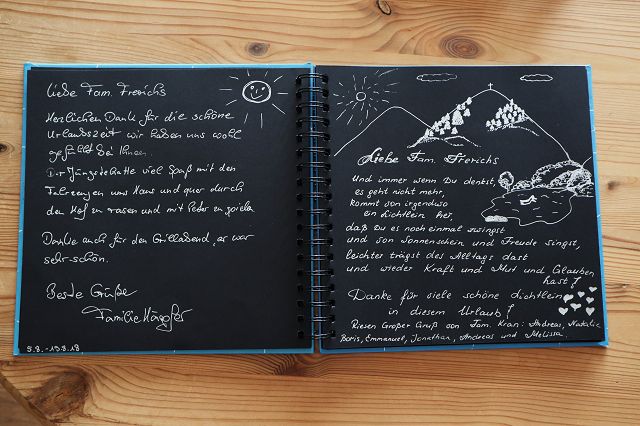 Liebe Fam. Frerichs
Herzlichen Dank für die schöne
Urlaubszeit wir haben uns wohl
gefühlt bei Ihnen.
Der Jüngste hatte viel Spaß mit den
Fahrzeugen ums Haus und quer durch
den Hof zu rasen und mit Peter zu spielen
Danke auch für den Grillabend, er war
sehr schön.
Beste Grüße
Familie
8.8.-15.8.18
Liebe Fam. Frerichs
Und immer wenn Du denkst,
es geht nicht mehr,
kommt von irgendwo
ein Lichtlein her,
daß Du es noch einmal zwingst
und von Sonnenschein und Freude singst,
leichter trägst des Alltags Last
und wieder Kraft und Mut und Glauben
hast!
Danke für viele schöne Lichtlein
in diesem Urlaub!
Riesen Großer Gruß von Fam. Kran: Andreas, Natalie
Boris, Emmanuel, Jonathan, Andreas und Melissa.